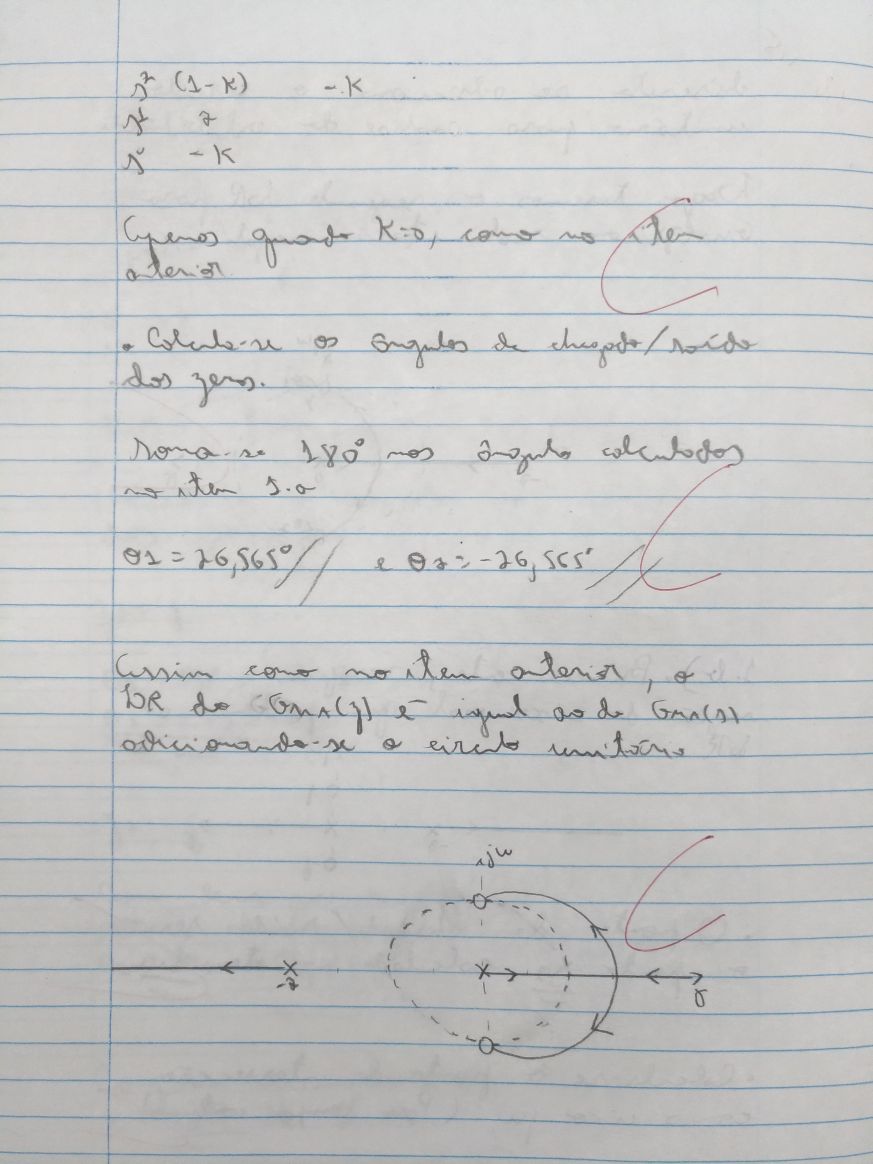 s² (1-K) -K
s¹ 2
s⁰ -K
Apenas quando K=0, como no item
anterior
• Calcula-se os ângulos de chegada/saída
dos zeros.
Soma-se 180° nos ângulo calculados
no item 1.a
θ1 = 26,565° e θ2 = -26,565°
Assim como no item anterior, o
LDR do GMA(z) é igual ao do GMA(s)
adicionando-se o circulo unitário
jω
-2
σ